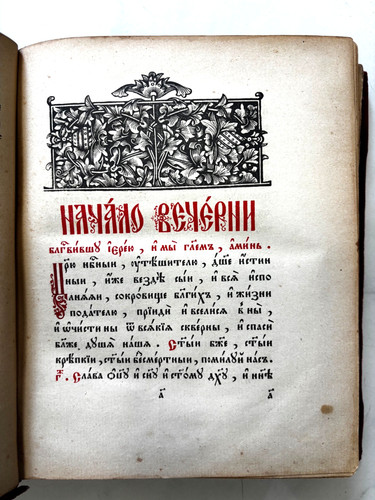 НАЧА́ЛО ВЕЧЕ́РНИ
благⷭ҇ви́вшꙋ і҆ере́ю , и҆ мы̀ гл҃емъ , а҆ми́нь .
Цр҃ю нбⷭ҇ныи , ᲂу҆тѣ́шителю , дш҃е и҆́стин
ныи , и҆́же вездѣ̀ сы́и , и҆ всѧ̀ и҆спо
лнѧ́ѧи , сокро́вище бл҃ги́хъ , и҆ жи́зни
пода́телю , прїидѝ и҆ всели́сѧ в ны̀ ,
и҆ ѡ҆чи́сти ны ѿ всѧ́кїѧ скве́рны , и҆ спасѝ
бл҃же , дꙋ́шѧ на́шѧ . Ст҃ы́и бж҃е , ст҃ы́и
крѣ́пкїи , ст҃ы́и безсме́ртныи , поми́лꙋй на́съ .
г҃ . Сла́ва ѻ҆ц҃ꙋ̀ и҆ сн҃ꙋ и҆ ст҃о́мꙋ дх҃ꙋ , и҆ нн҃ѣ
а҃ а҃